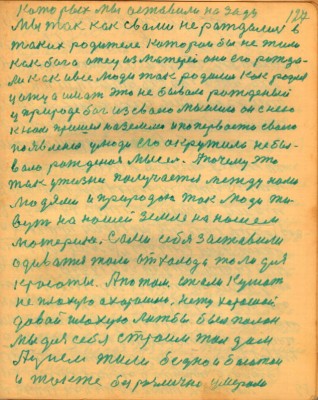 которых мы оставили на заду
127
Мы так как свами не раждались в
таких родителе которой бы не жило
как бога отец из матерей оно его рожда-
ли как и все люди так родился как родил
и отца и мать это не бывал рожденый
у природе бог из своего мысли он с нею
к нам пришел на землю и поперваето своего
появления у людей его окружили не бы-
вало рождения мысли. А почему это
так у жизни получается между нами
людями и природой так люди жи-
вут на нашей земле на нашем
материке. Сами себя заставили
одиватся толи от холода толи для
красоты. А потом стали кушат
не плохую а хорошию, нету хорошей
давай плохую лижбы был полон
мы для себя строим там дом
А у нем жили бедной богатой
и также безразлично умерали